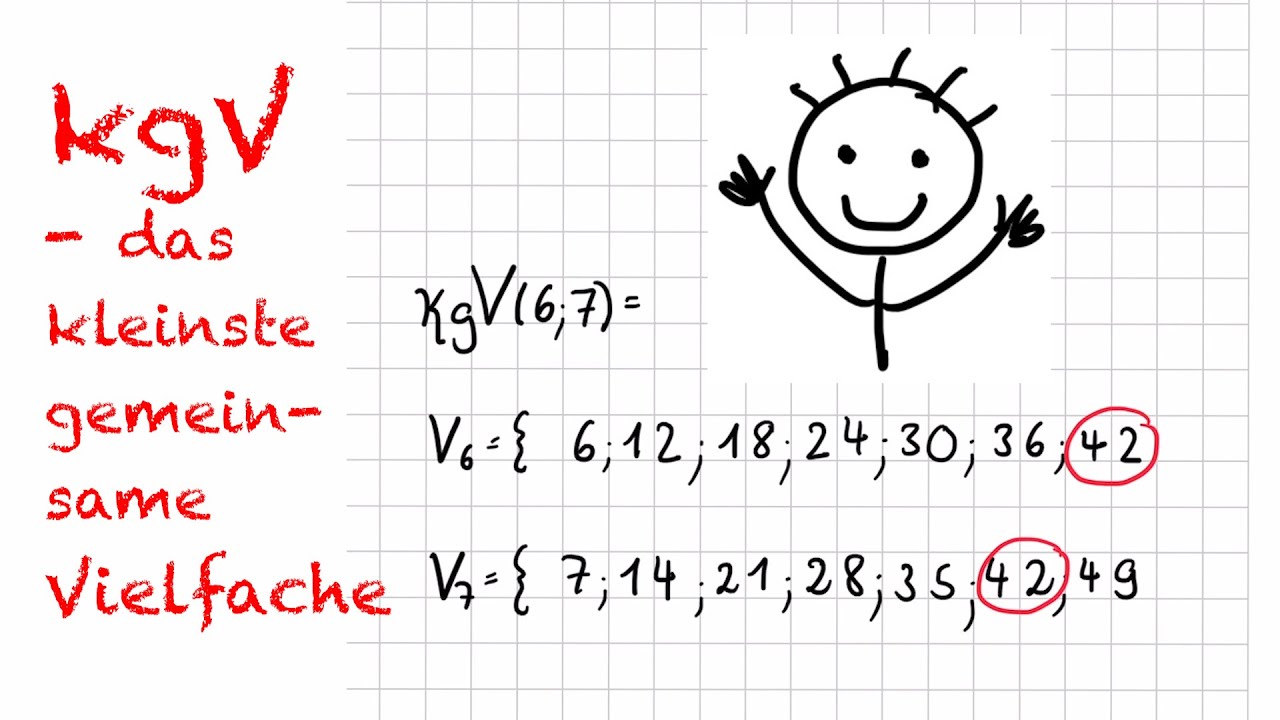 kgV
- das
kleinste
gemein-
same
Vielfache
kgV(6;7)=
V6={ 6;12;18;24;30;36;42
V7={ 7;14;21;28;35;42;49